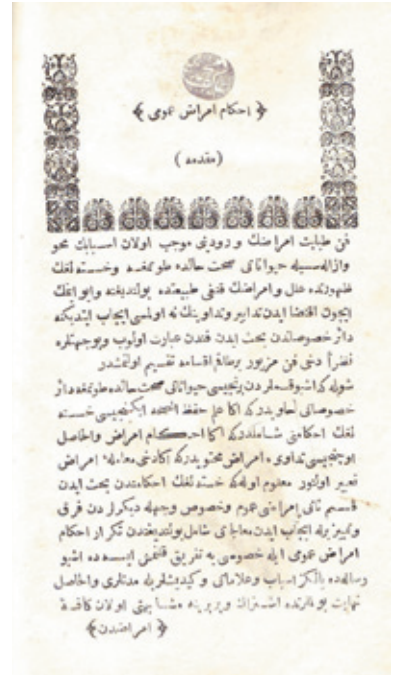 ﴿ احكام امراض عمومى ﴾
( مقدمه )
فن طبابت امراضك ورودينى موجب اولان اسبابك محو
وازاله‌سيله حيواناتى صحت حالنده طوتمغه وخسته‌لغك
ظهورنده علل وامراضك قنغى طبيعتده بولنديغنه وانواعنك
ايچون اقتضا ايدن تدابير وتداوينك نه اولمسى ايجاب ايتديكنه
دائر خصوصاتدن بحث ايدن فندن عبارت اولوب وبوجهتلره
نظراً دخى فن مزبور برطاقم اقسامه تقسيم اولنمشدر
شويله كه اشبو قسملردن برنجيسى حيواناتى صحت حالنده طوتمغه دائر
خصوصاتى حاويدركه اكا علم حفظ الصحه ايكنجيسى خسته
لغك احكامنى شاملدركه اكا احكام امراض والحاصل
اوچنجيسى تداوىء امراض محتويدركه اكا دخى معالجهٔ امراض
تعبير اولنور معلوم اوله كه خسته لغك احكامندن بحث ايدن
قسم ثانى امراضى عموم وخصوص وجهله ديكرلردن فرق
وتمييزيله ايجاب ايدن معالجاتى شامل بولنديغندن تكرار احكام
امراض عمومى ايله خصوصى يه تفريق قلنمش ايسه ده اشبو
رساله‌ده يالكز اسباب وعلاماتى وكيديشلريله مدتلرى والحاصل
نهايت بونلرده اشتراك وبربرينه مشابهتى اولان كافهٔ
﴿ امراضدن ﴾